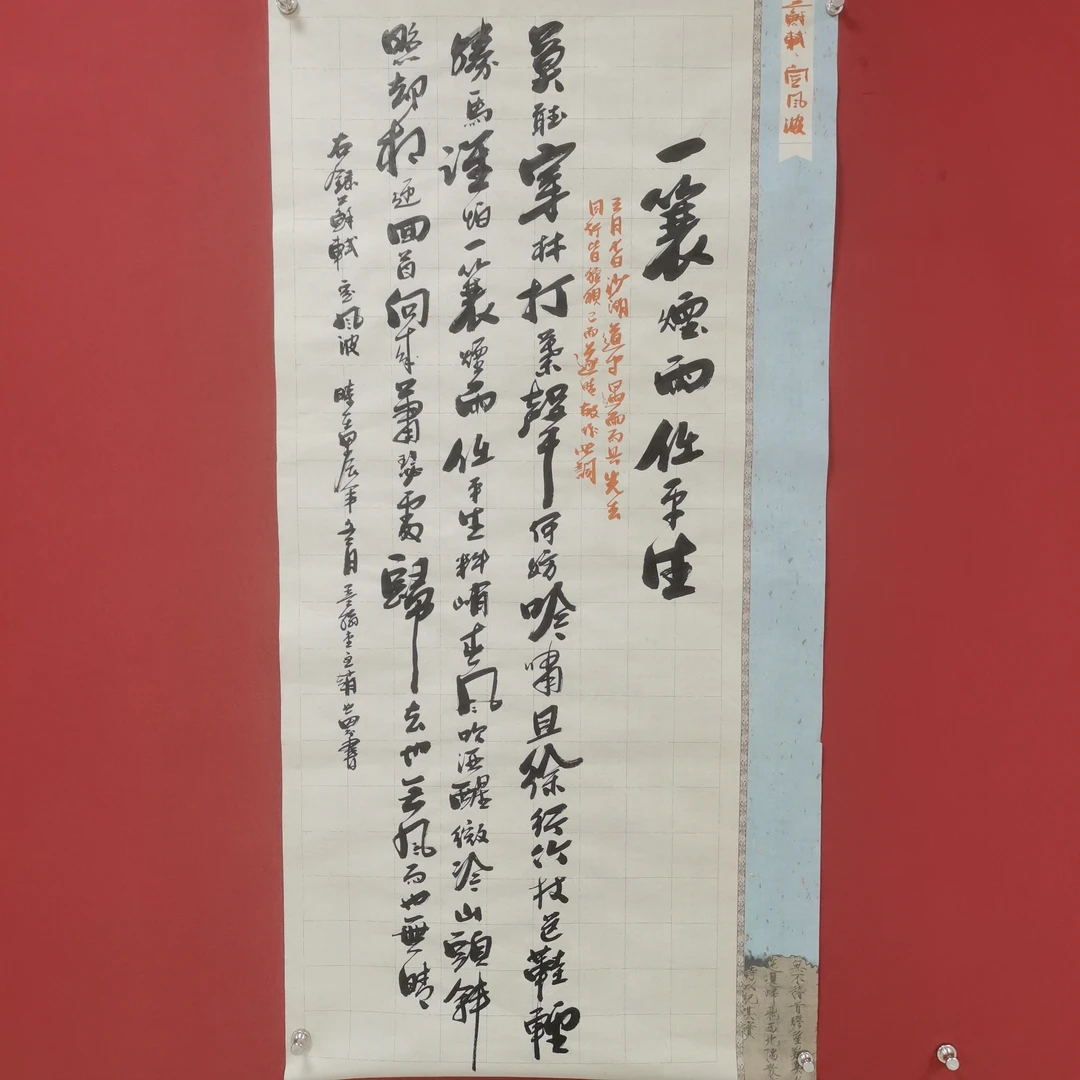 苏轼、定风波
一蓑煙雨任平生
三月七日沙湖道中遇雨雨具先去
同行皆狼狽而遂晴故作此詞
莫聽穿林打葉聲何妨吟嘯且徐行竹杖芒鞋輕
勝馬誰怕一蓑煙雨任平生料峭春風吹酒醒微冷山頭斜
照却相迎回首向來蕭瑟處歸去也無風雨也無晴
右録蘇軾定風波 時在甲辰年五月